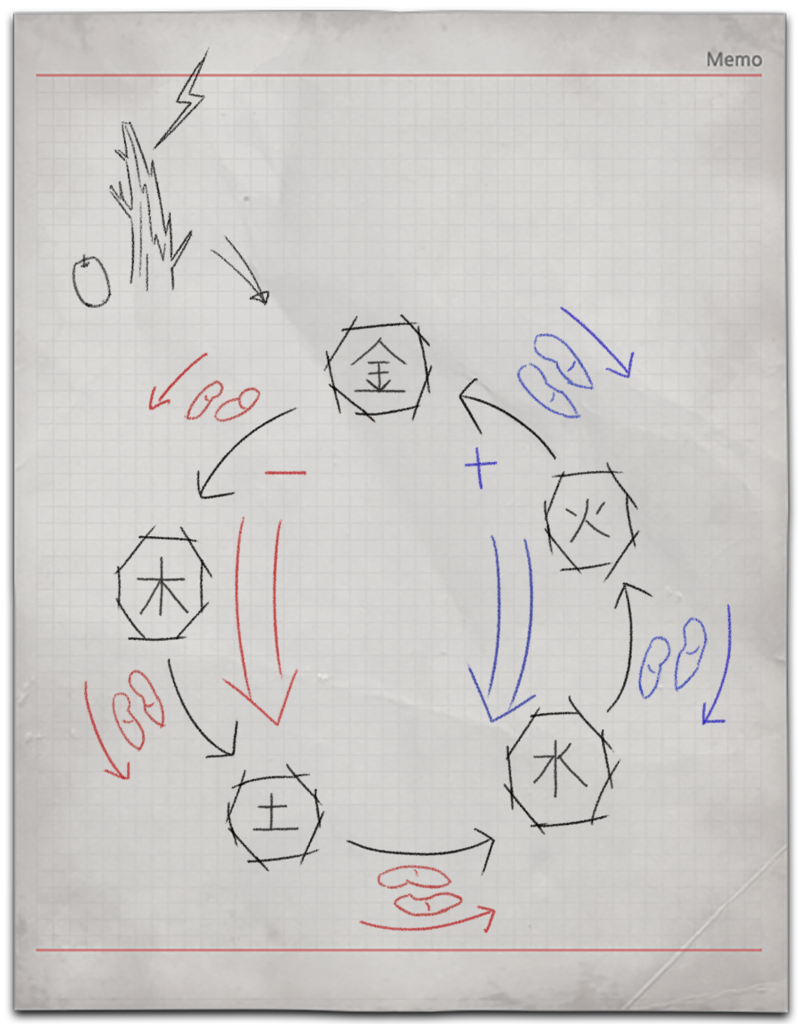 Memo
金
火
木
水
土
−
+